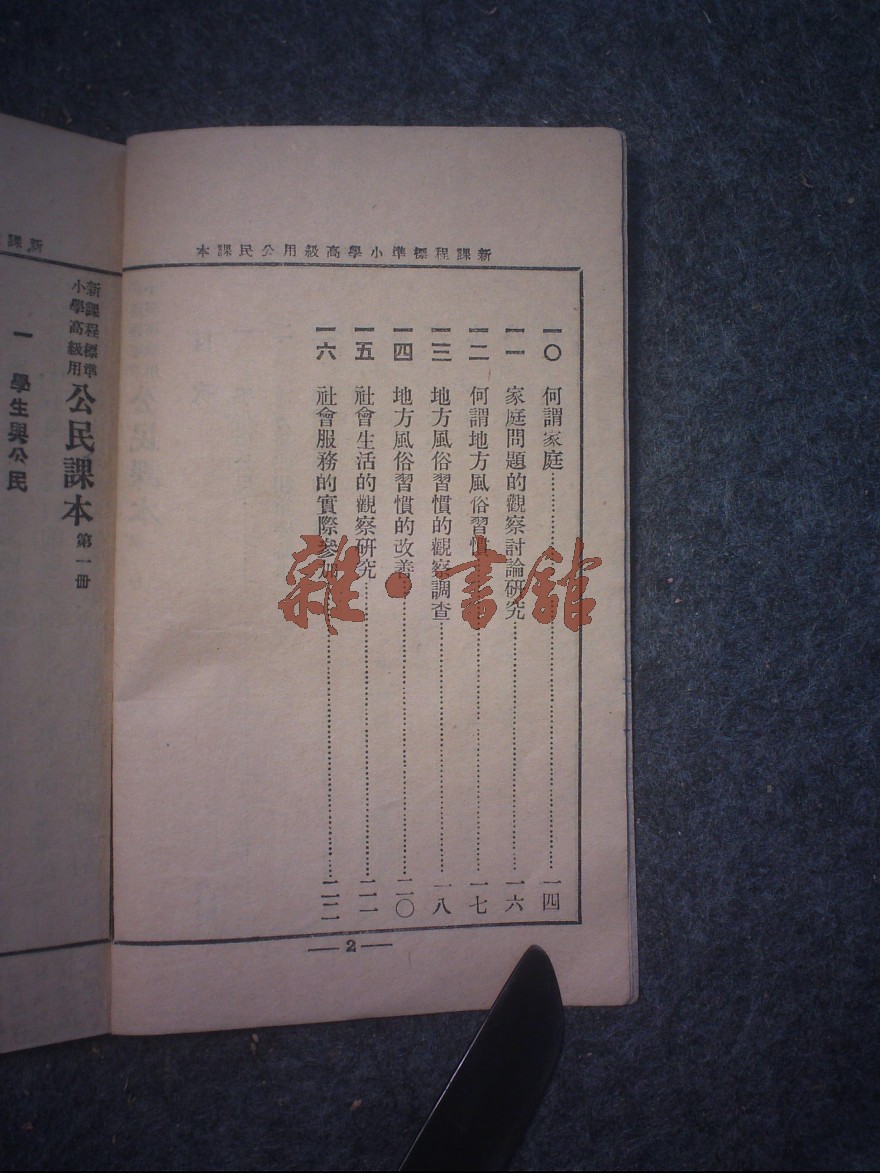 新課程標準小學高級用公民課本
一〇 何謂家庭……一四
一一 家庭問題的觀察討論研究……一六
一二 何謂地方風俗習慣……一七
一三 地方風俗習慣的觀察調查……一八
一四 地方風俗習慣的改善……二〇
一五 社會生活的觀察研究……二一
一六 社會服務的實際參加……二二
— 2 —
新課
新課程標準
小學高級用
公民課本 第一冊
一 學生與公民
雜·書館